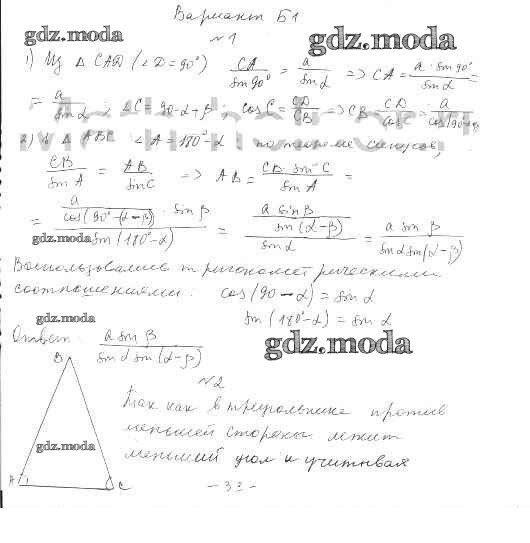 Вариант Б1
gdz.moda
№1
gdz.moda
1) Из Δ CAD (∠D=90°) CA/sin90° = a/sinα => CA = a·sin90°/sinα =
= a/sinα, ∠C=90-α+β; cosC = CD/CB => CB = CD/cosC = a/cos(90-α+β)
2) Из Δ ABC ∠A=180°-α по теореме синусов,
CB/sinA = AB/sinC => AB = CB·sinC/sinA =
= a/cos(90°-(α-β)) · sinβ / sin(180°-α) = a sinβ/sin(α-β) / sinα = a sinβ/sinα sin(α-β)
gdz.moda
Воспользовались тригонометрическими
соотношениями: cos(90-α) = sinα
gdz.moda
sin(180°-α) = sinα
Ответ: a sinβ/sinα sin(α-β)
gdz.moda
№2
B
Так как в треугольнике против
меньшей стороны лежит
gdz.moda
меньший угол и учитывая
A C
- 33 -